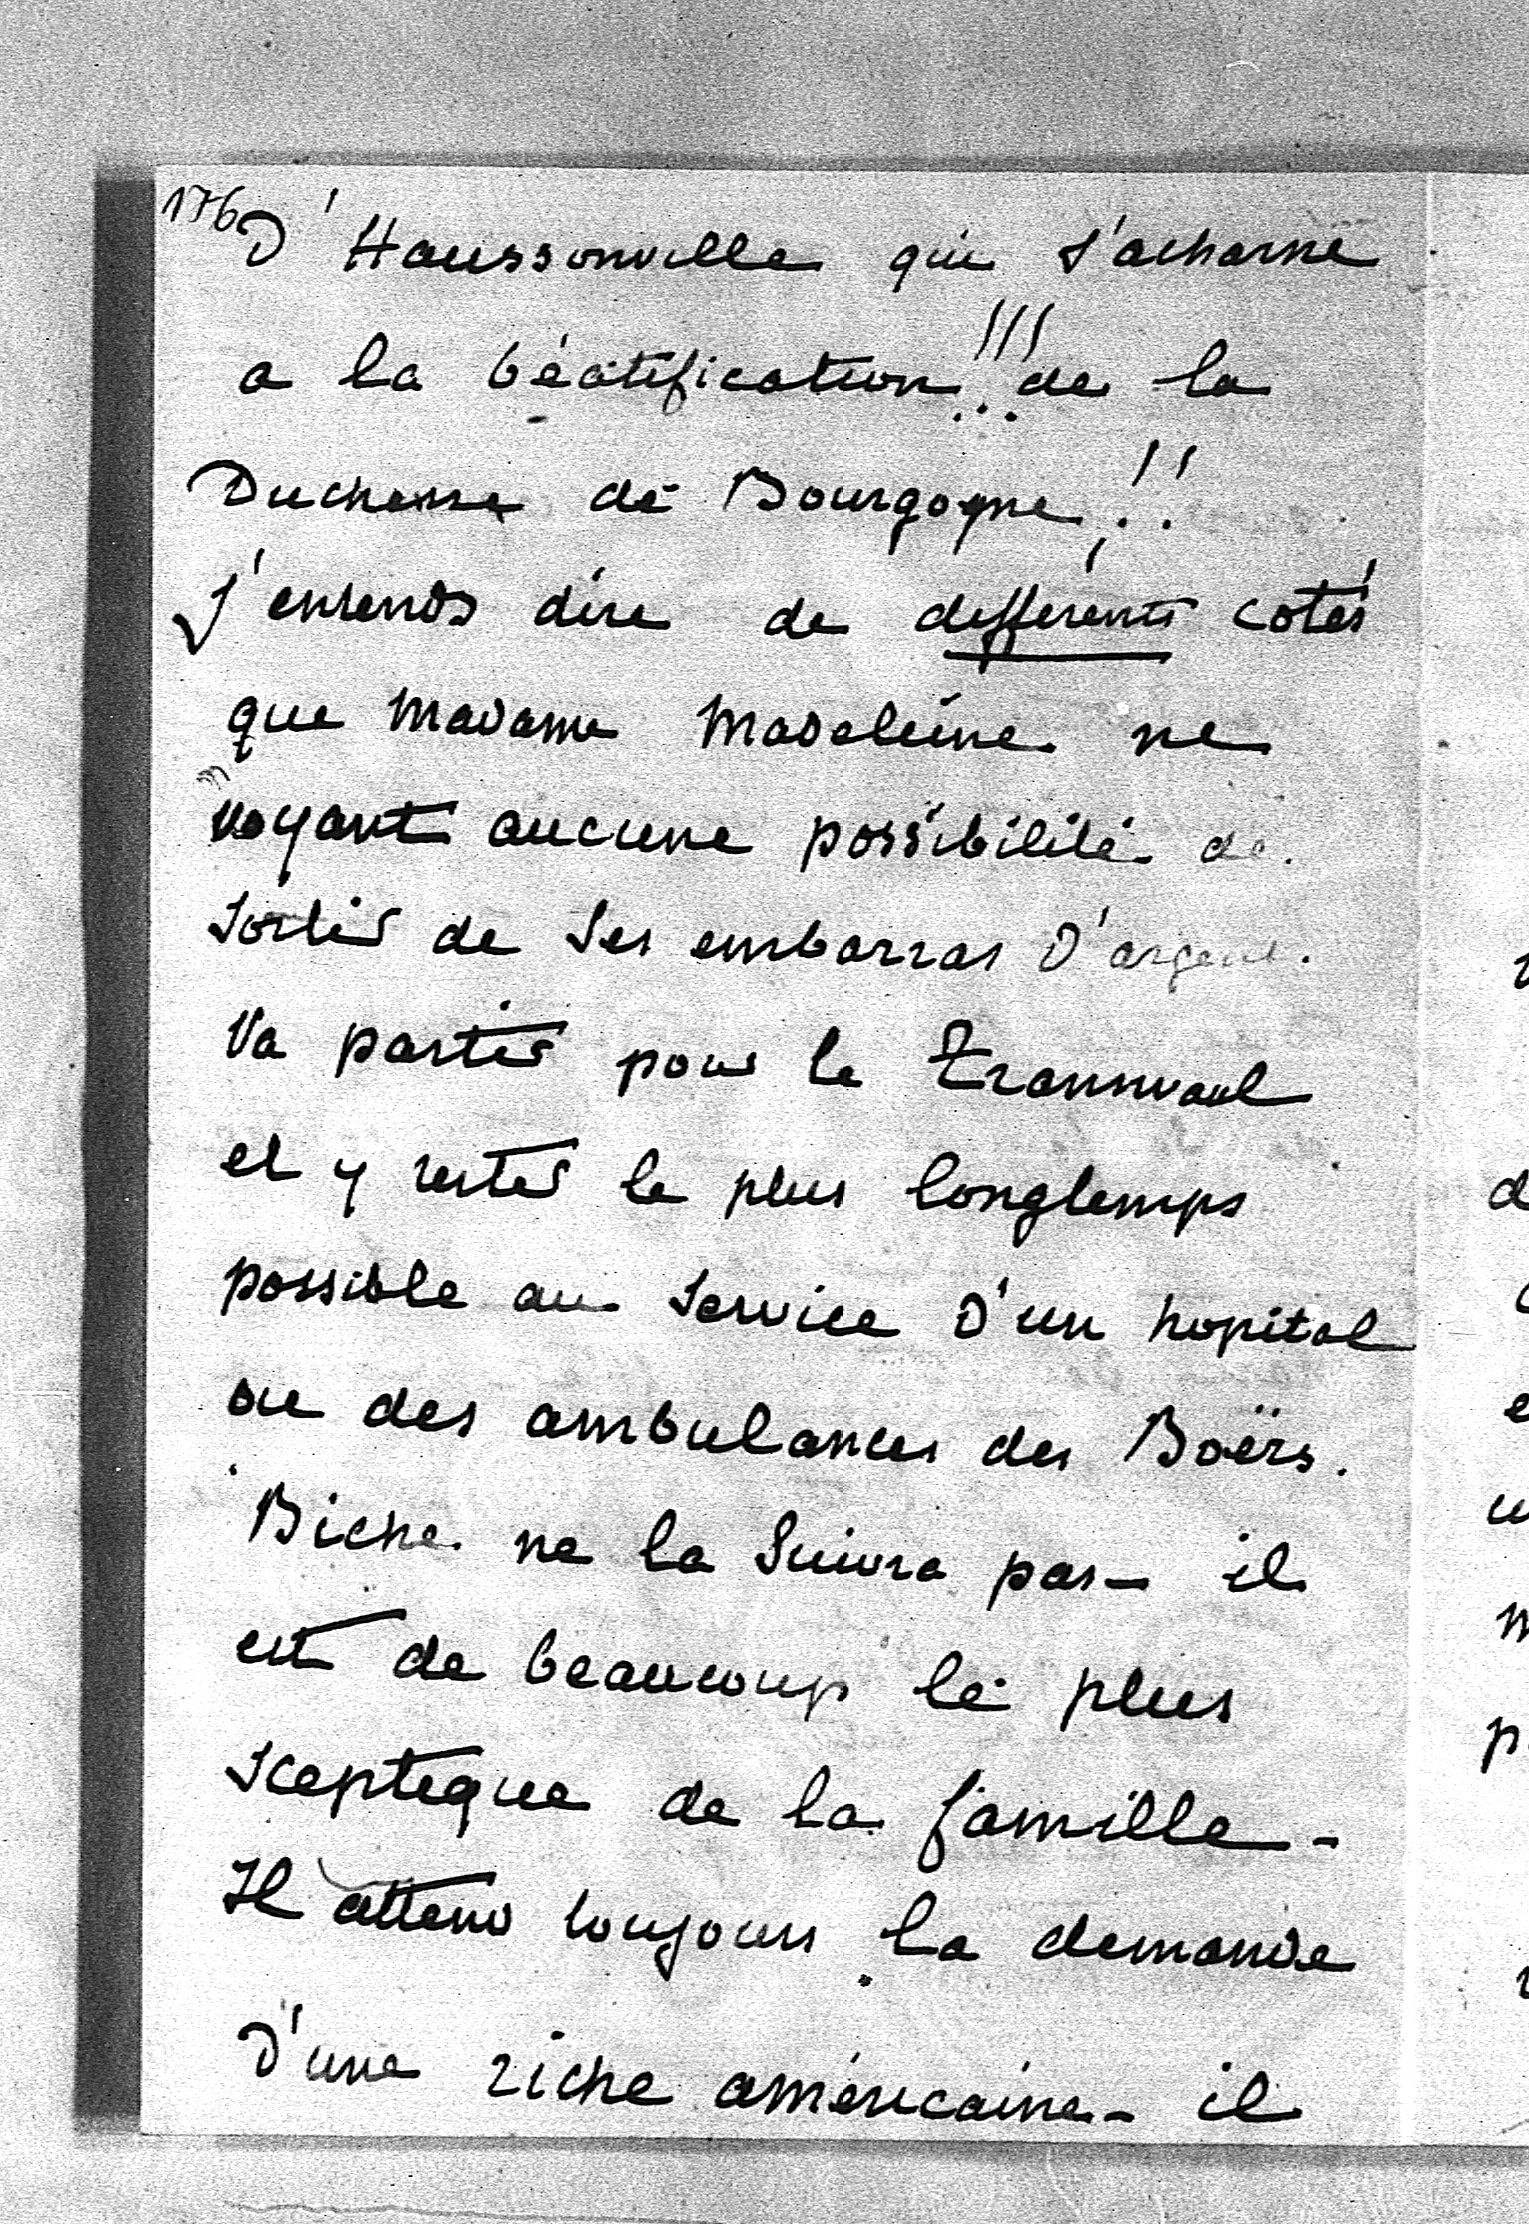 176
D'Haussonville qui s'acharne
a la béatification!!! de la
Duchesse de Bourgogne!!
J'entends dire de différents cotés
que Madame Madeleine ne
voyant aucune possibilité de
sortir de ses embarras d'argent.
Va partir pour le Transvaal
et y rester le plus longtemps
possible au service d'un hopital
ou des ambulances des Boërs.
Biche ne la suivra pas - il
est de beaucoup le plus
sceptique de la famille -
Il attend toujours la demande
d'une riche américaine - il